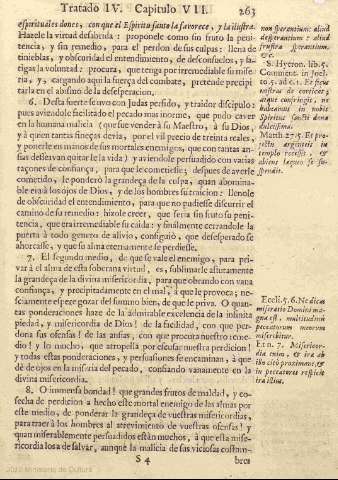 Tratado IV. Capitulo VII. 263
espirituales dones, con que el Espiritu santo la favorece, y la ilustra.
Hazele la virtud desabrida: proponele como sin fruto la peni-
tencia, y sin remedio, para el perdon de sus culpas: llena de
tinieblas, y obscuridad el entendimiento, de desconsuelos, y fa-
tigas la voluntad: procura, que tenga por irremediable su mise-
ria, y, cargando aqui la fuerça del combate, pretende precipi-
tarla en el abismo de la desesperacion.
6. Desta suerte se uvo con Judas perfido, y traidor discipulo:
pues aviendole facilitado el pecado mas inorme, que pudo caver
en la humana malicia (que fue vender à su Maestro, à su Dios,
y à quien tantas finezas devia, por el vil precio de treinta reales,
y ponerle en manos de sus mortales enemigos, que con tantas an-
sias deseavan quitarle la vida) y aviendole persuadido con varias
raçones de confiança, para que le cometiese; despues de averle
cometido, le ponderò la grandeça de la culpa, quan abomina-
ble era à los ojos de Dios, y de los hombres su traicion: llenole
de obscuridad el entendimiento, para que no pudiesse discurrir el
camino de su remedio: hizole creer, que seria sin fruto su peni-
tencia, que era irremediable su caida: y finalmente cerrandole la
puerta à todo genero de alivio, consiguiò, que desesperado se
ahorcasse, y que su alma eternamente se perdiesse.
7. El segundo medio, de que se vale el enemigo, para pri-
var à el alma de esta soberana virtud, es, sublimarle astutamente
la grandeça de la divina misericordia, para que obrando con vana
confiança, y precipitadamente en el mal, à que le provoca; ne-
ciamente espere gozar del sumo bien, de que le priva. O quan-
tas ponderaciones haze de la admirable excelencia de la infinita
piedad, y misericordia de Dios! de la facilidad, con que per-
dona sus ofensas! de las ansias, con que procura nuestro reme-
dio! y lo mucho, que atropella por escusar nuestra perdicion!
y todas estas ponderaciones, y persuasiones se encaminan, à que
dè de ojos en la miseria del pecado, confiando vanamente en la
divina misericordia.
8. O immensa bondad! que grandes frutos de maldad, y co-
secha de perdicion a hecho este mortal enemigo de las almas por
este medio, de ponderar la grandeça de vuestras misericordias,
para traer à los hombres al atrevimiento de vuestras ofensas! y
quan miserablemente persuadidos están muchos, à que esta mise-
ricordia los a de salvar, aunque la malicia de sus viciosas costum-
S 4 bres
non sperantium: aliud
desperantium: aliud
frustra sperantium,
&c.
S. Hyeron. lib. 5.
Comment. in Joel.
Matth. 27. 5. Et pro-
jectis argenteis in
templo recessit, &
abiens laqueo se su-
spendit.
Eccli. 5. 6. Ne dicas
miseratio Domini ma-
gna est, multitudinis
peccatorum meorum
miserebitur.
Et n. 7. Misericor-
dia enim, et ira ab
illo citò proximant, et
in peccatores respicit
ira illius.